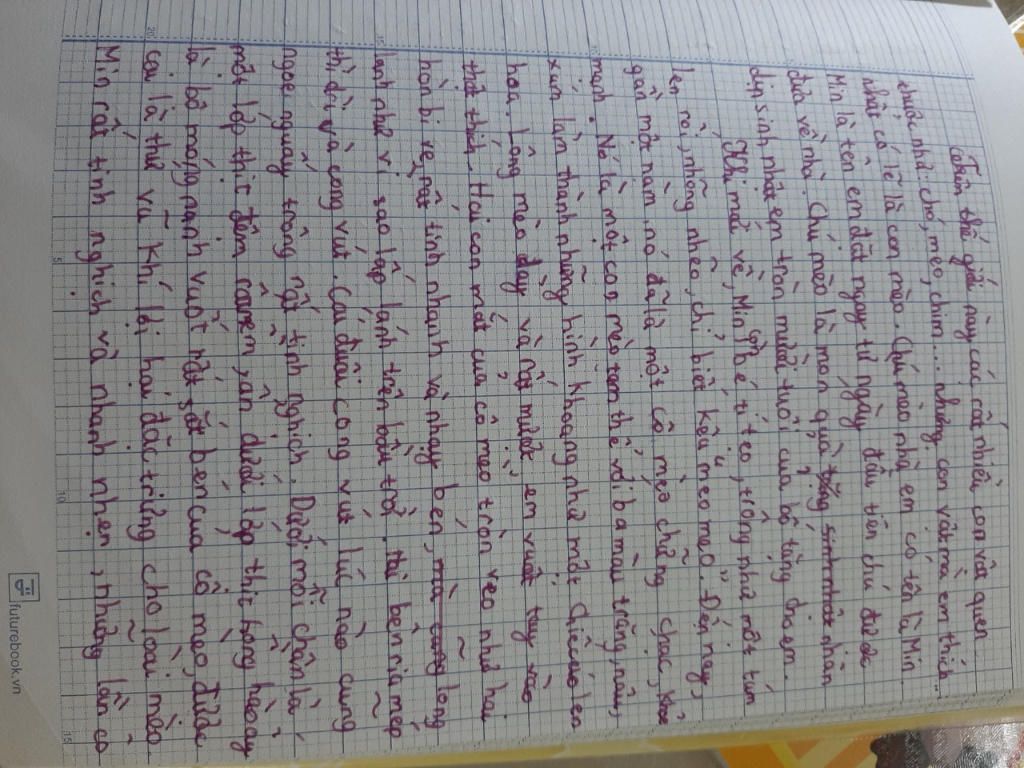 Trên thế giới này các rất nhiều con vật quen
thuộc như chó, mèo, chim... nhưng con vật mà em thích
nhất có lẽ là con mèo. Chú mèo nhà em có tên là Min.
Min là tên em đặt ngay từ ngày đầu tiên chú được
đưa về nhà. Chú mèo là món quà sinh nhật nhân
dịp sinh nhật em tròn mười tuổi của bố tặng cho em.
Khi mới về, Min còn bé tí teo, trông như một túm
len rối, nhõng nhẽo, chỉ biết kêu meo meo. Đến nay,
gần một năm, nó đã là một cô mèo chững chạc, khoẻ
mạnh. Nó là một con mèo tam thể với ba màu trắng, nâu,
xám lần thành những hình khoang như một chiếc áo len
hoa. Lông mèo dày và rất mượt em vuốt tay vào
thật thích. Hai con mắt của cô mèo tròn veo như hai
hòn bi ve, rất tinh nhanh và nhạy bén, mà cũng long
lanh như vì sao lấp lánh trên bầu trời. Hai bên ria mép
thì dài và cong vút. Cái đuôi cong vút lúc nào cũng
ngoe nguẩy trông rất tinh nghịch. Dưới mỗi chân là
một lớp thịt đệm ẩn dưới lớp thịt hồng hào ấy
là bộ móng nanh vuốt rất sắc bén của cô mèo, được
coi là thứ vũ khí lợi hại đặc trưng cho loài mèo
Min rất tinh nghịch và nhanh nhẹn, nhiều lần cô
5
10
15
20
futurebook.vn